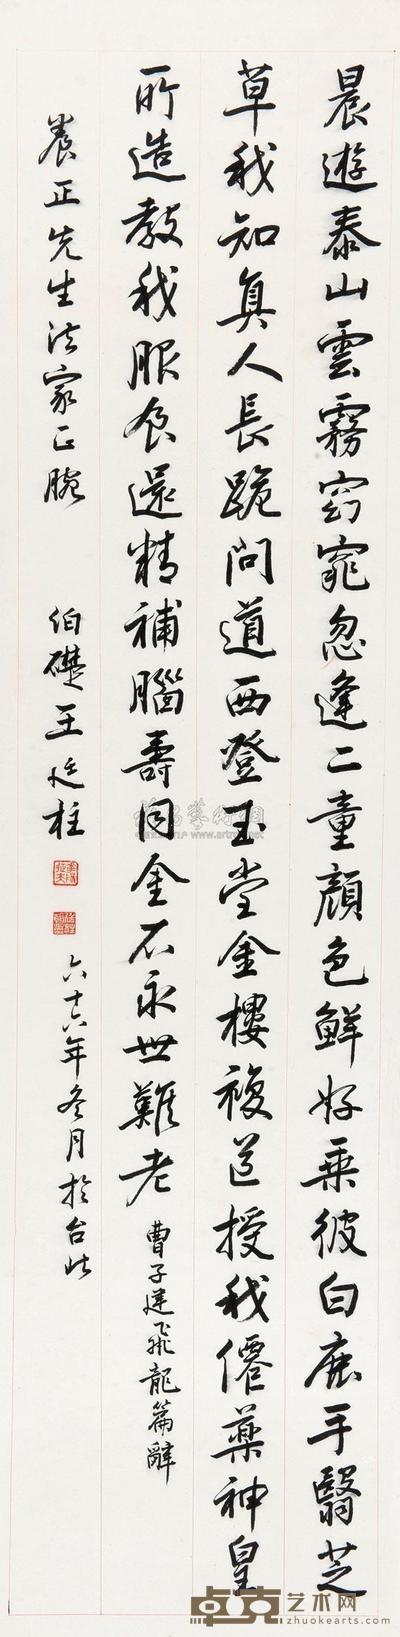 晨遊泰山雲霧窈窕忽逢二童顏色鮮好乘彼白鹿手翳芝
草我知真人長跪問道西登玉堂金樓複道授我僊藥神皇
所造教我服食還精補腦壽同金石永世難老
曹子建飛龍篇辭
養正先生法家正腕
伯礎王廷柱
六十六年冬月於台北
卓克艺术网
zhuokearts.com